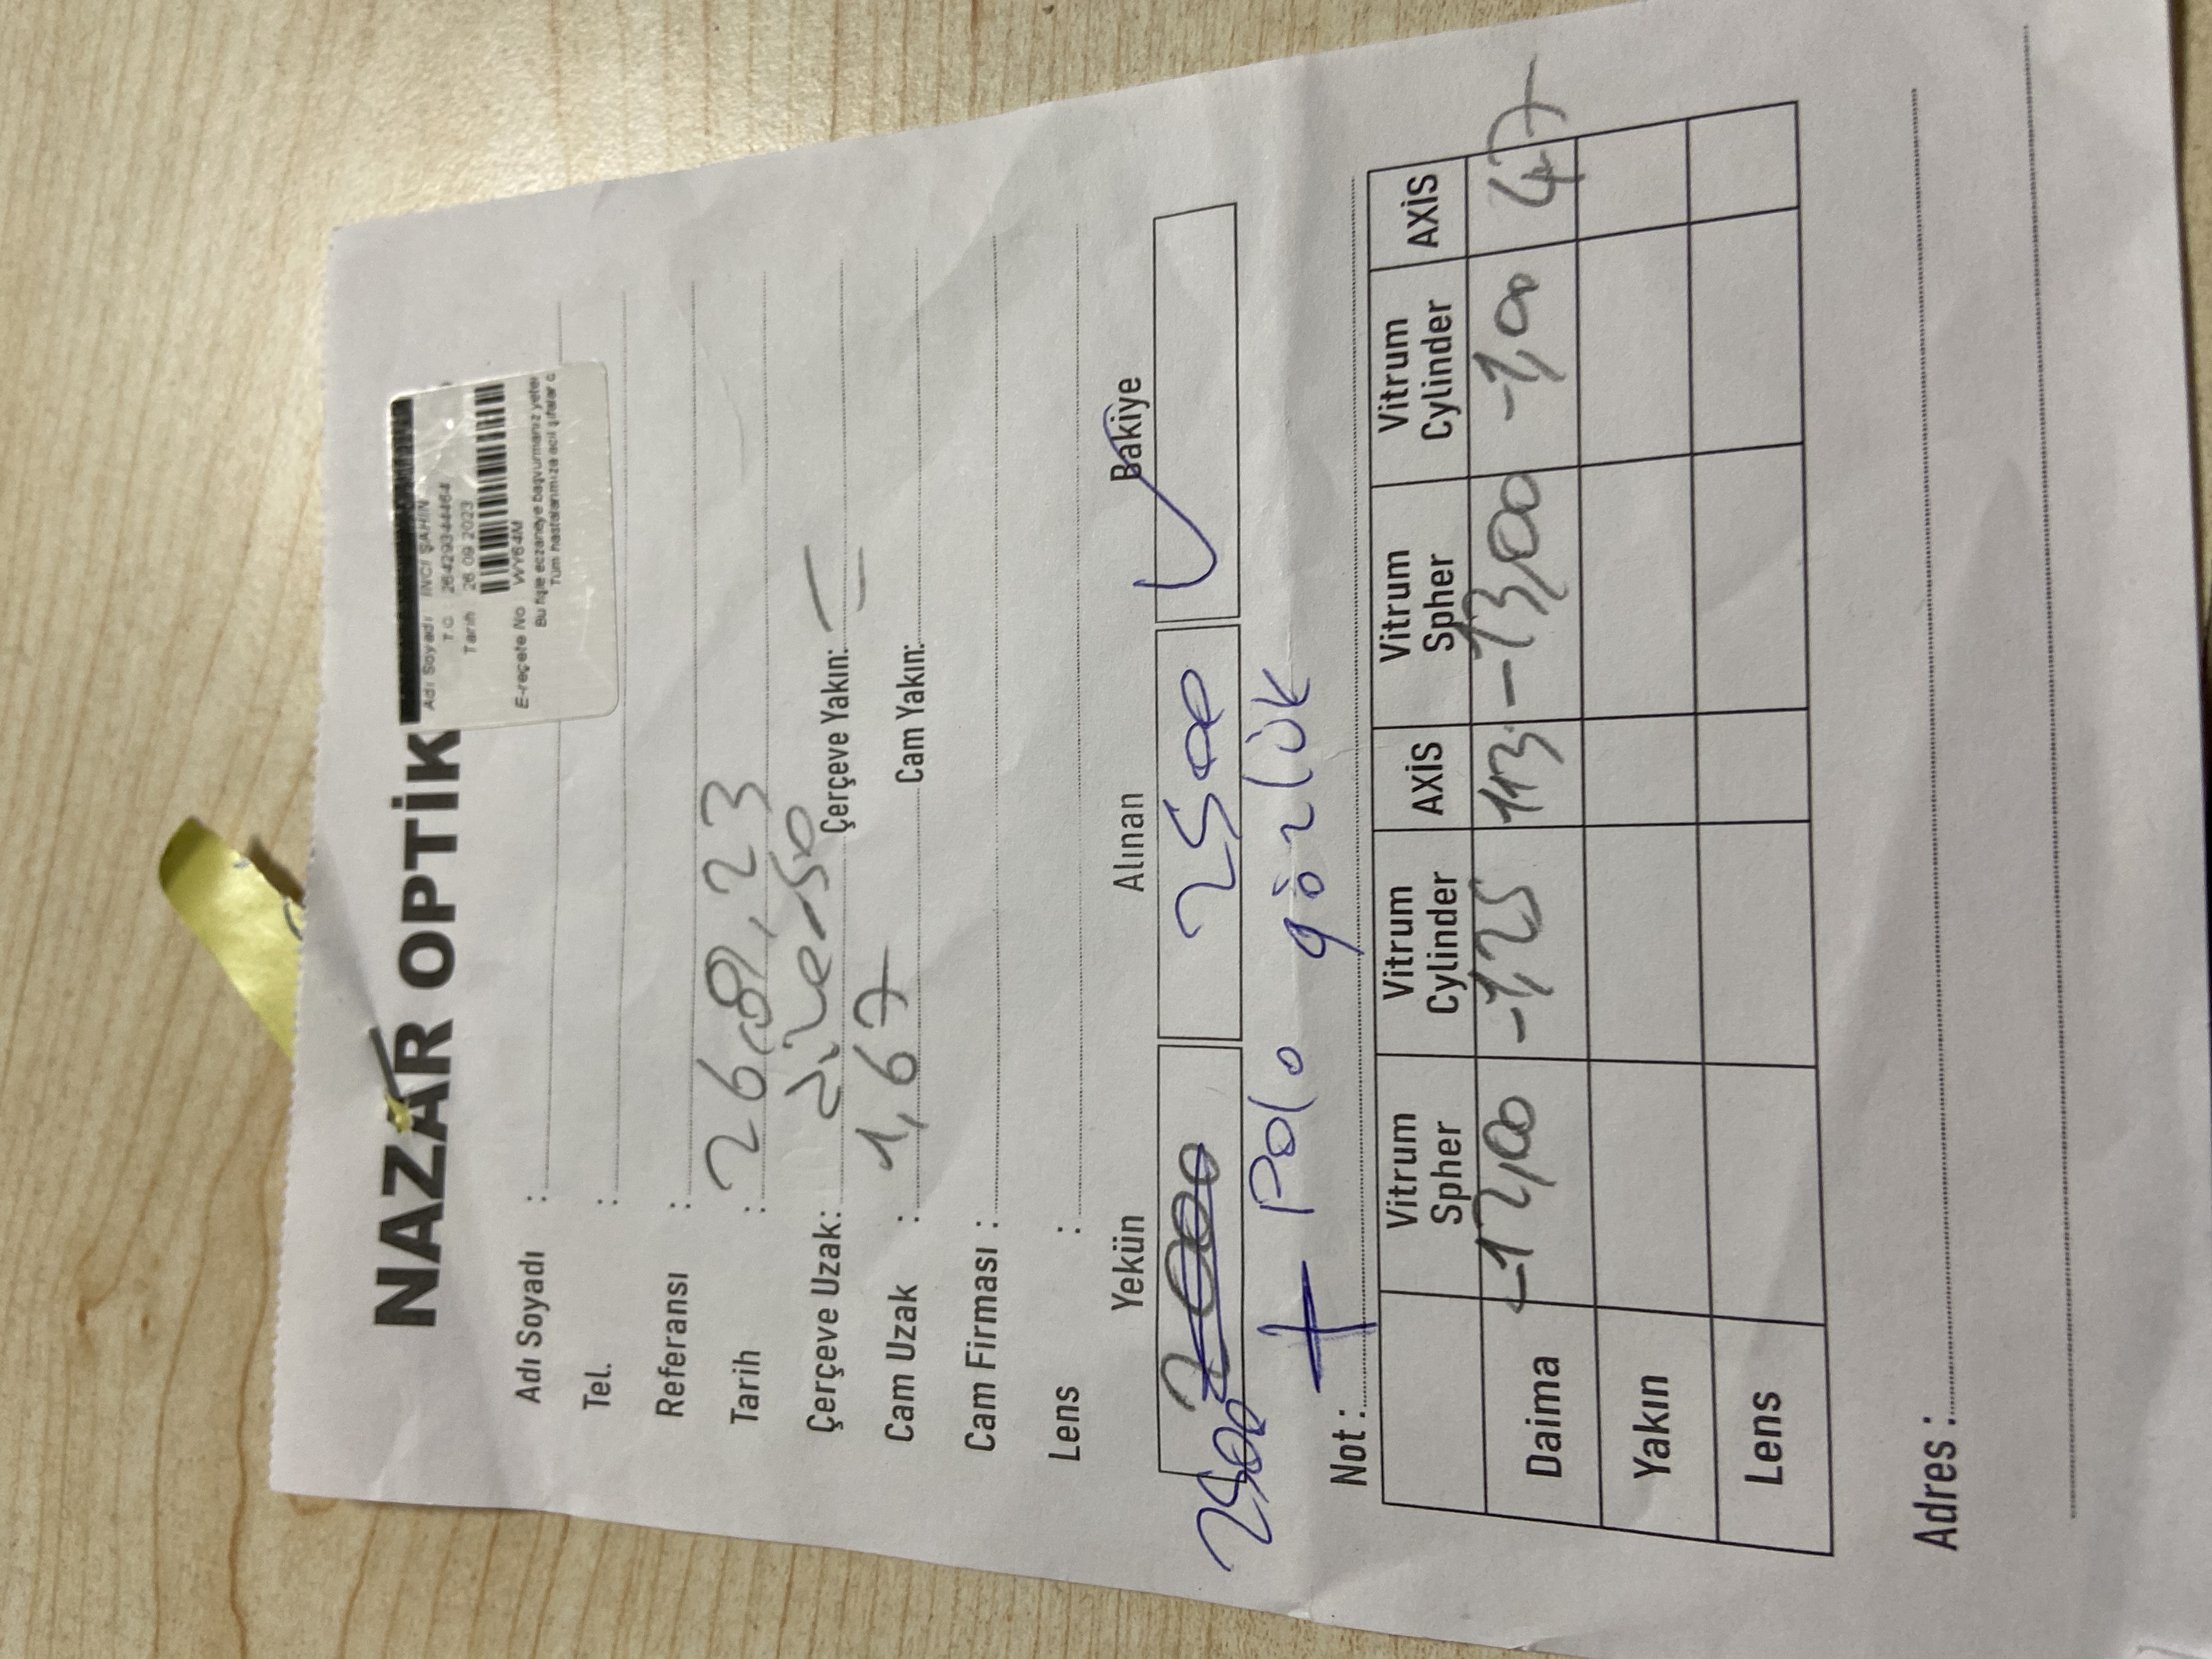 NAZAR OPTİK
Adı Soyadı : İNCİ ŞAHİN
T.C. 26429344464
Tarih 26.09.2023
E-reçete No WY64M
Bu fişle eczaneye başvurmanız yeter
Tüm hastalarımıza acil şifalar
Adı Soyadı :
Tel. :
Referansı :
Tarih : 26, 23
Çerçeve Uzak: Çerçeve Yakın:
Cam Uzak : 1,67 Cam Yakın:
Cam Firması :
Lens :
Yekün Alınan Bakiye
2000 2500
2500
+ Polo gözlük
Not :
Vitrum Spher Vitrum Cylinder AXİS Vitrum Spher Vitrum Cylinder AXİS
Daima -12,00 -1,25 113 -13,00 -1,00 47
Yakın
Lens
Adres :